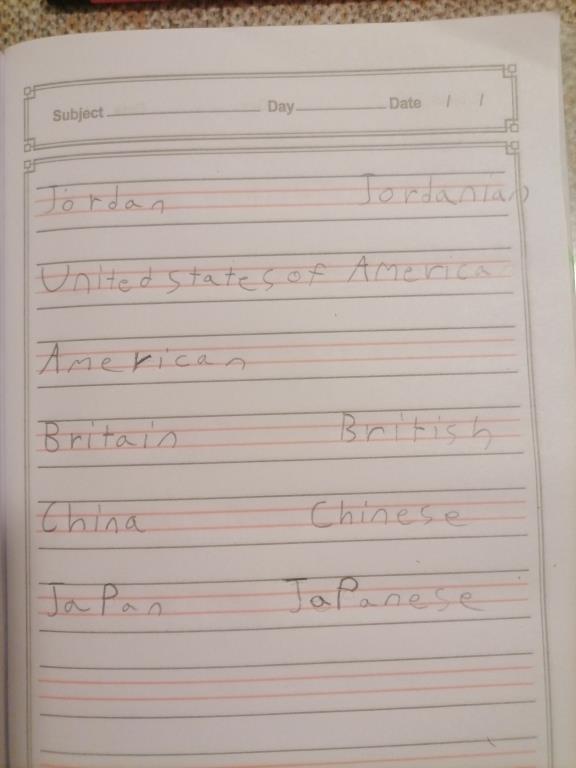 Subject Day Date / /
Jordan Jordanian
United states of America
American
Britain British
China Chinese
JaPan JaPanese